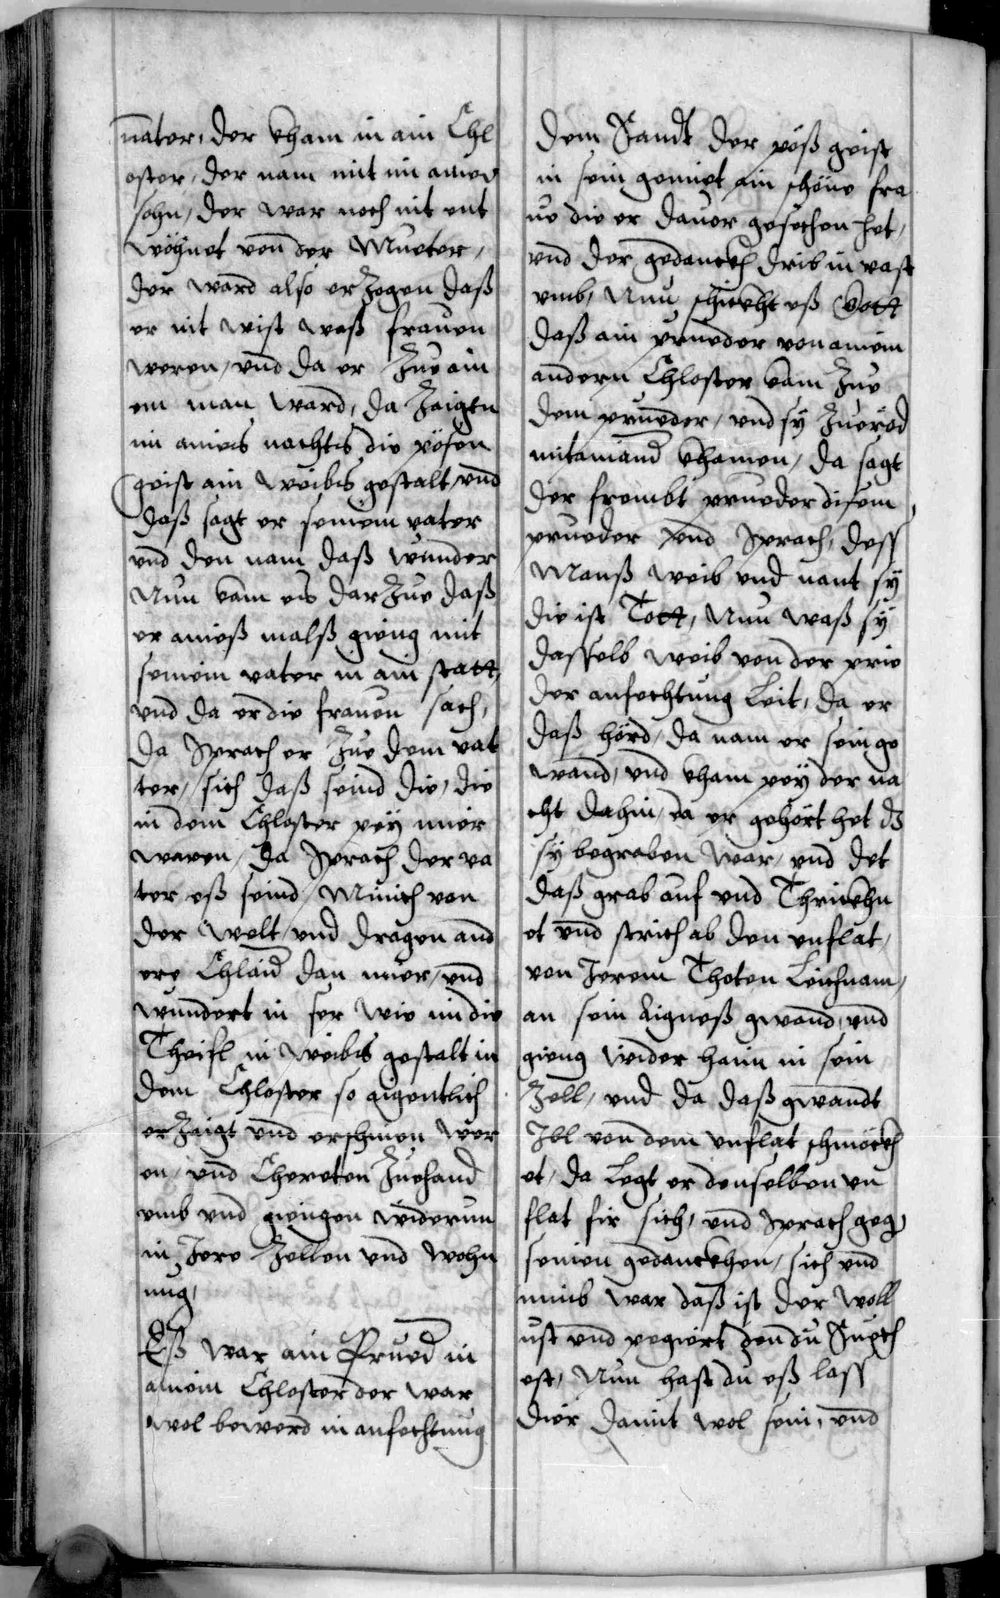 vater, der kham in ain Chl
oster, der nam mit im ainen
sohn, der war noch nit ent
wögnet von der Mueter,
der ward also erzogen daß
er nit wist waß frauen
weren, vnd da er Zue ain
em man ward, da Zaigten
im aines nachts die pösen
geist ain weibs gestalt, vnd
daß sagt er seinem vater
vnd den nam daß wunder
Nun kam es darZue daß
er aineß malß gieng mit
seinem vater in ain statt,
vnd da er die frauen sach,
da sprach er Zue dem vat
ter, sich daß seind die, die
in dem Chloster pey mier
waren, da sprach der va
ter eß seind Münich von
der welt, vnd dragen and
ere Chlaid dan mier, vnd
wundert in ser wie im die
Theifl in weibs gestalt in
dem Chloster so aigentlich
erZaigt vnd erschinen wer
en, vnd Cherten Zuehand
vmb vnd giengen widerum
in Jere Zellen vnd wohn
ung,
Eß war ain Prued in
ainem Chloster der war
wol bewerd in anfechtung
dem Sandt der pöß geist
in sein gemüet ain schöne fra
ue die er dauor gesechen het,
vnd der gedanckh drib in vast
vmb, Nun schickht eß Gott
daß ain prueder von ainem
andern Chloster kam Zue
dem prueder, vnd sy Zuered
mitainand khamen, da sagt
der frembt prueder disem
prueder vnd sprach, dess
Manß weib vnd nant sy
die ist Tott, Nun waß sy
dasselb weib von der wie
der anfechtung Leit, da er
daß hörd, da nam er sein ge
wand, vnd kham pey der na
cht dahin, da er gehört het dz
sy begraben war, vnd det
daß grab auf vnd Thrickhn
et vnd strich ab den vnflat,
von Jerem Thoten Leichnam,
an sein Aigneß gwand, vnd
gieng wider haim in sein
Zell, vnd da daß gwandt
Jbl von dem vnflat schmöckh
et, da Legt er denselben vn
flat fir sich, vnd sprach geg
seinen gedanckhen, sich vnd
nimb war daß ist der woll
ust vnd pegiert den du Suech
est, Nun hast du eß lass
dier damit wol sein, vnd